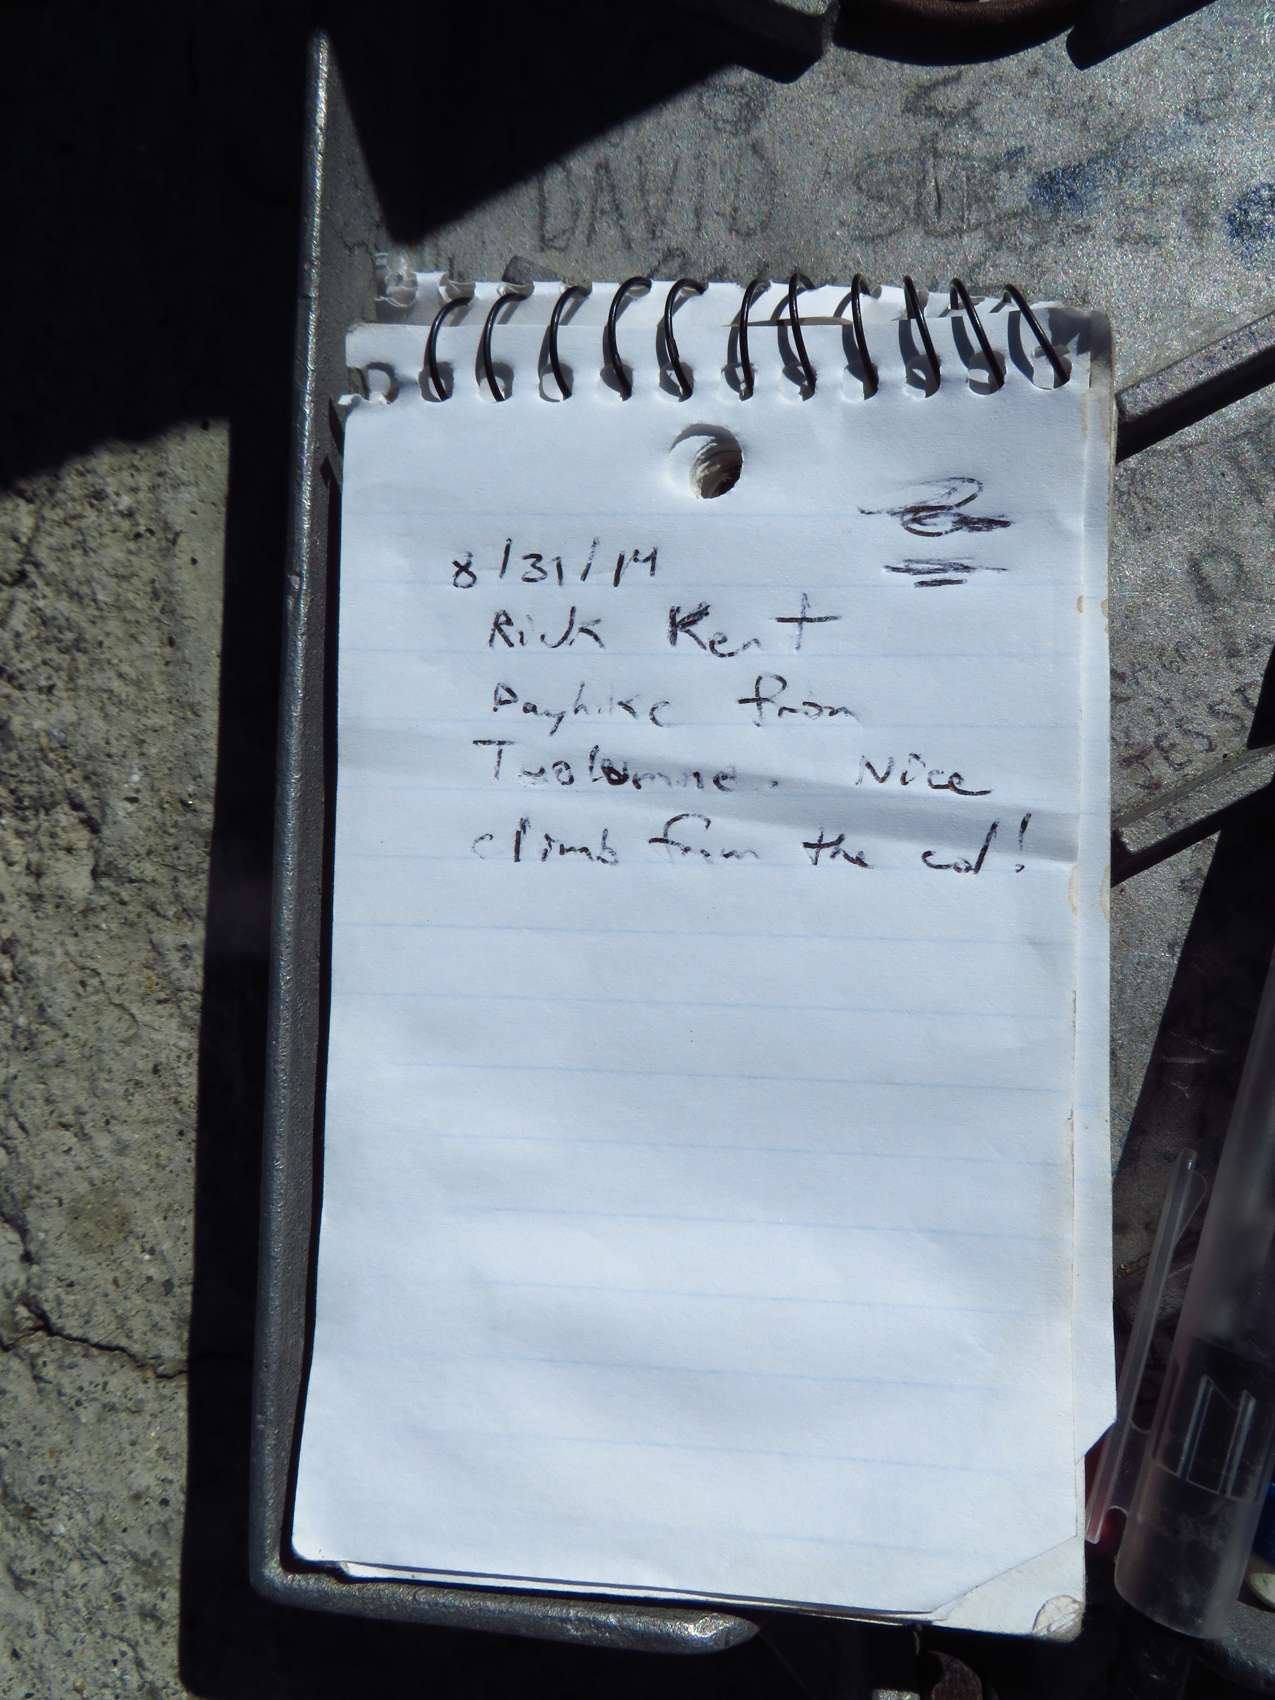 DAVID
8/31/14
Rick Kent
Dayhike from
Tuolomne. Nice
climb from the col!
JESS